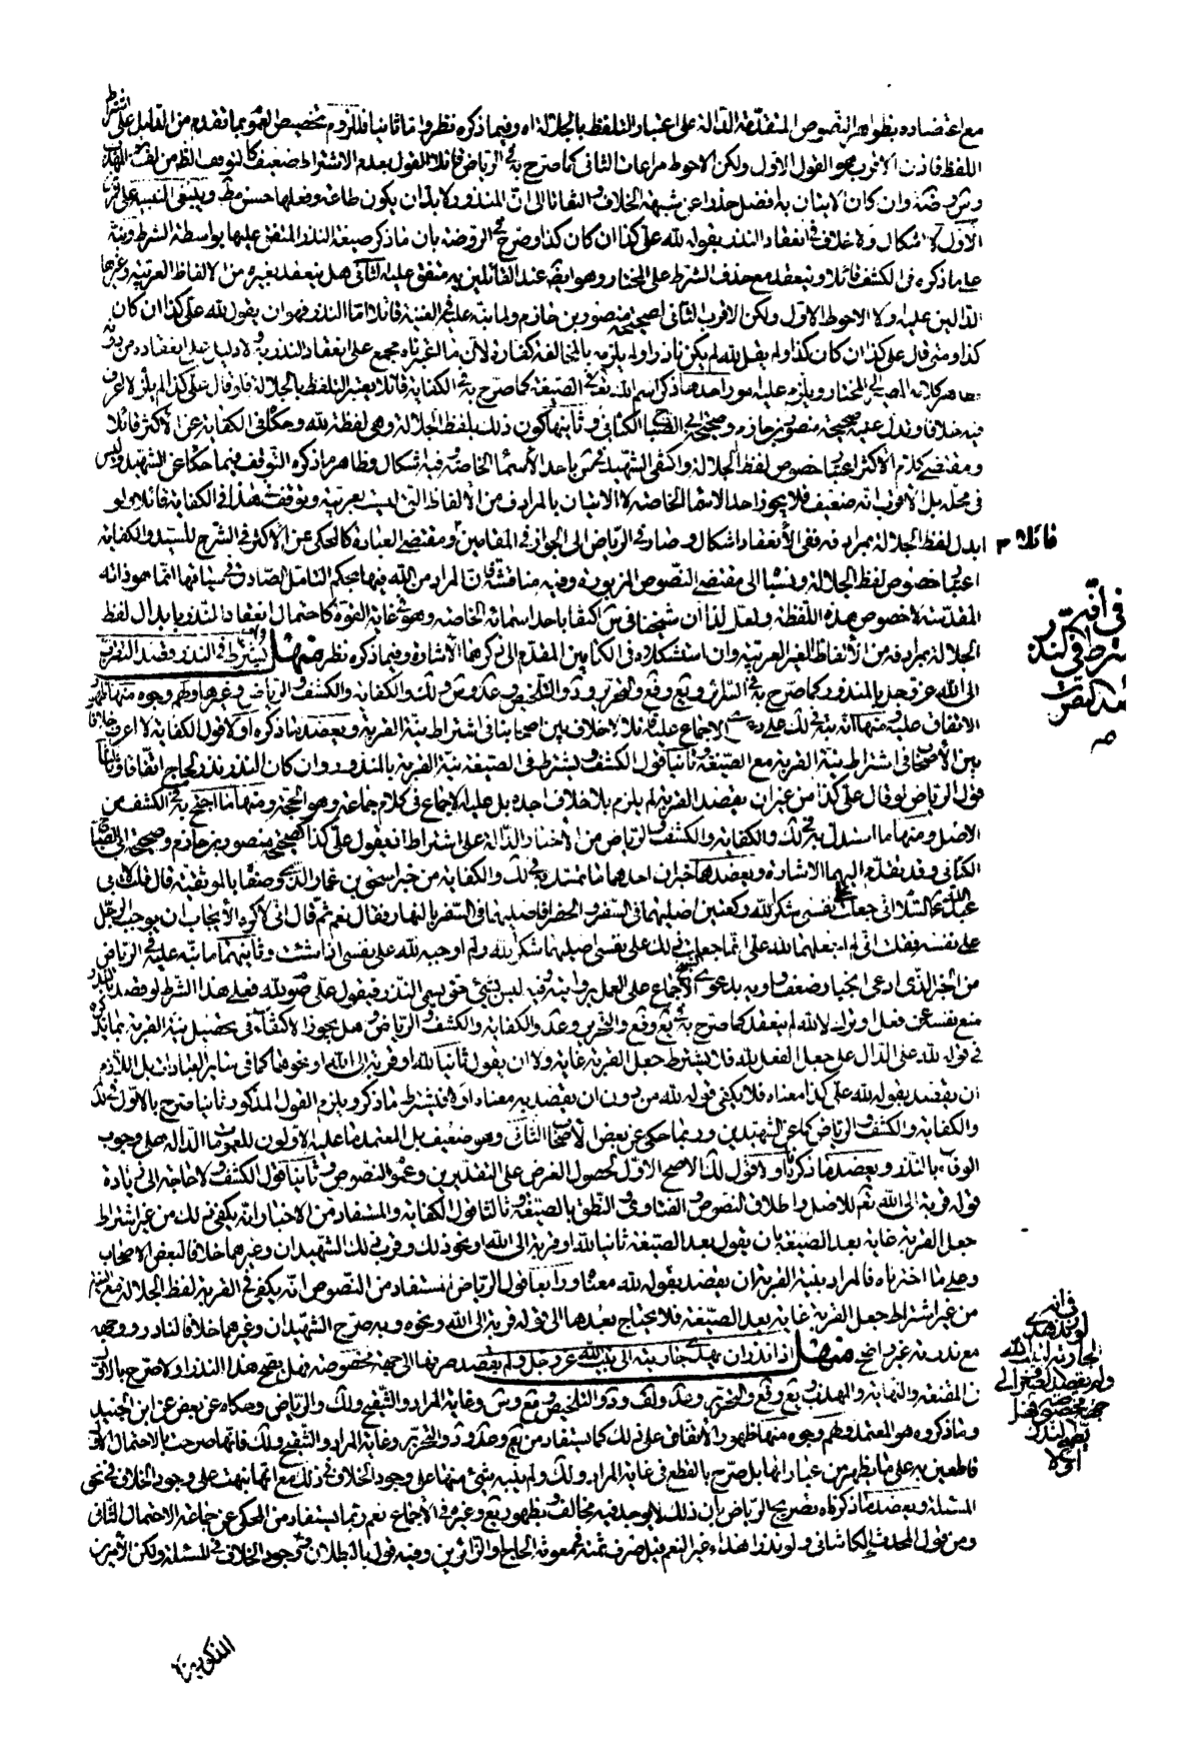 مع اعتضاده بظواهر النصوص المتقدمة الدالة على اعتبار التلفظ بالجلالة اه وفيما ذكره نظر واما ثانيا فللزوم تخصيص العمو بما تقدم من الدليل على اشتراط
اللفظ فاذن الاقرب هو القول الاول ولكن الاحوط مراعات الثاني كما صرح به في الرياض قائلا القول بعدم الاشتراط ضعيف كالتوقف
وان كان الاتيان به افضل حذرا عن شبهة الخلاف والتفاتا الى ان المنذور لا بد ان يكون طاعة وفعلها حسن مط وينبغي التنبيه على
الاول لا اشكال ولا خلاف في انعقاد النذر بقوله لله على كذا ان كان كذا وصرح في الروضة بان ما ذكر صيغة النذر المتفق عليها بواسطة الشرط
على ما ذكره في الكشف قائلا وينعقد مع حذف الشرط على المختار وهو ايضا عند القائلين به متفق عليه الثاني هل ينعقد بغيره من الالفاظ العربية وغيرها
الدالين عليه او لا الاحوط الاول ولكن الاقرب الثاني لصحيحة منصور بن حازم ولما نبه عليه في الغنية قائلا اما النذر فهو ان يقول لله على كذا ان كان
كذا ومتى قال على كذا ان كان كذا ولم يقل لله لم يكن ناذرا ولم يلزمه بالمخالفة كفارة لان ما اعتبرناه مجمع على انعقاد النذر به ولا دليل على انعقاده من دونه
المختار ويلزم عليه امور احدها ذكر اسم الله تعالى في الصيغة كما صرح به في الكفاية قائلا يعتبر التلفظ بالجلالة فلو قال على كذا لم يلزم لا اعرف
فيه خلافا وتدل عليه صحيحة منصور بن حازم وصحيحة ابي الصباح الكناني وثانيها كون ذلك بلفظ الجلالة وهي لفظة لله وحكاه في الكفاية عن الاكثر قائلا
ومقتضى كلام الاكثر اعتبار خصوص لفظ الجلالة واكتفى الشهيد في س باحد الاسماء الخاصة وفيه اشكال وظاهر ما ذكره التوقف فيما حكاه عن الشهيد وليس
في محله بل الاقرب انه ضعيف فلا يجوز احد الاسماء الخاصة ولا الاتيان بالمرادف من الالفاظ التي ليست بعربية وتوقف هذا في الكفاية قائلا ولو
قائلا م ابدل لفظ الجلالة بمرادفه ففي الانعقاد اشكال وصار في الرياض الى الجواز في المقامين ومقتضى العبارة كالمحكى عن الاكثر في الشرح للسيد والكفاية
اعتبار خصوص لفظ الجلالة ونسبا الى مقتضى النصوص المزبورة وفيه مناقشة فان المراد من الله فيها بحكم التامل الصادق في سياقها انما هو ذاته
المقدسة لا خصوص هذه اللفظة ولعل لذا اكتفى باحد اسمائه الخاصة وهو في غاية القوة كاحتمال انعقاد النذر بابدال لفظ
الجلالة بمرادفه من الالفاظ الغير العربية وان استشكلاه في الكتابين المقدم الى ذكرهما الاشارة وفيما ذكره نظر منهل يشترط في النذر قصد التقرب
الى الله عز وجل بالمنذور كما صرح به في السرائر و يع و فع والتحرير و د والتلخيص و عد و س و لك والكفاية والكشف والرياض وغيرها ولهم وجوه منها ظهور
الاتفاق عليه ومنها انه نبه في لك على دعوى الاجماع عليه قائلا لا خلاف بين اصحابنا في اشتراط نية القربة ويعضد ما ذكره اولا قول الكفاية لا اعرف خلافا
بين الاصحاب في اشتراط نية القربة مع الصيغة وثانيا قول الكشف ويشترط في الصيغة نية القربة بالمنذور وان كان النذر نذر لجاج اتفاقا وثالثا
قول الرياض لو قال على كذا من غير ان يقصد القربة لم يلزم بلا خلاف اجده بل عليه الاجماع في كلام جماعة وهو الحجة ومنها ما احتج به في الكشف من
الاصل ومنها ما استدل به في لك والكفاية والكشف والرياض من الاخبار الدالة على اشتراط ان يقول لله على كذا كصحيحة منصور بن حازم وصحيحة ابي الصباح
الكناني وقد تقدم اليهما الاشارة ويعضدهما خبران احدهما ما تمسك به في لك والكفاية من خبر اسحق بن عمار الذي وصفا بالموثقية قال قلت لابي
عبد الله عليه السلام اني جعلت على نفسي شكرا لله ركعتين اصليهما في السفر والحضر افاصليهما في السفر بالنهار فقال نعم ثم قال اني لاكره الايجاب ان يوجب الرجل
على نفسه فقلت اني لم اجعلهما لله على انما جعلت ذلك على نفسي اصليهما شكرا لله ولم اوجبه لله على نفسي افادعهما اذا شئت وثانيهما ما نبه عليه في الرياض
من الخبر الذي ادعى انجبار ضعف راويه بدعوى الاجماع على العمل بروايته وفيه ليس بشئ حتى يسمى النذر فيقول على صوم لله فعلى هذا الشرط لو قصد بالنذر
منع نفسه عن فعل او ترك لا لله لم ينعقد كما صرح به في يع و فع والتحرير و عد والكفاية والكشف والرياض وهل يجوز الاكتفاء في تحصيل نية القربة بما يذكره
في قوله لله على الدال على جعل الفعل لله فلا يشترط جعل القربة غاية ولا ان يقول ثانيا لله او قربة الى الله او نحوهما كما في سائر العبادات بل اللازم
ان يقصد بقوله لله على كذا معناه فلا يكفي قوله لله من دون ان يقصد به معناه او لا فيشترط ما ذكر ويلزم القول المذكور ثانيا صرح بالاول في لك
والكفاية والكشف والرياض كما عن الشهيدين وربما حكى عن بعض الاصحاب الثاني وهو ضعيف بل المعتمد ما عليه الاولون للعمومات الدالة على وجوب
الوفاء بالنذر ويعضد ما ذكرناه اولا قول لك الاصح الاول لحصول الغرض على التقديرين وعموم النصوص وثانيا قول الكشف لا حاجة الى زيادة
قوله قربة الى الله تعالى للاصل واطلاق النصوص والفتاوى في النطق بالصيغة وثالثا قول الكفاية والمستفاد من الاخبار انه يكفي ذلك من غير اشتراط
جعل القربة غاية بعد الصيغة بان يقول بعد الصيغة ثانيا لله او قربة الى الله او نحو ذلك وقرب في لك الشهيدان وغيرهما خلافا لبعض الاصحاب
وعلى ما اخترناه فالمراد بنية القربة ان يقصد بقوله لله معناه ورابعا قول الرياض المستفاد من النصوص انه يكفي في القربة لفظ الجلالة مع النية
من غير اشتراط جعل القربة غاية بعد الصيغة فلا يحتاج بعدها الى قوله قربة الى الله ونحوه وبه صرح الشهيدان وغيرهما خلافا لنادر ووجهه
مع ندرته غير واضح منهل اذا نذر ان يهدي جاريته الى بيت الله عز وجل ولم يقصد صرفها الى جهة مخصوصة فهل يصح هذا النذر او لا صرح بالاول
في المقنعة والنهاية والمهذب و يع و فع والتحرير و عد ولف و د والتلخيص و س وغاية المراد والتنقيح ولك والرياض وحكاه عن بعض عن ابن الجنيد
وما ذكروه هو المعتمد ولهم وجوه منها ظهور الاتفاق على ذلك كما يستفاد من يع و عد و د والتحرير وغاية المراد والتنقيح ولك فانها صرحت بالاحتمال الاول
قاطعين به على ما يظهر من عباراتها بل صرح بالقطع في غاية المراد ولك ولم ينبه بشئ منها على وجود الخلاف في ذلك مع انها نبهت على وجود الخلاف في نحو
المسئلة ويعضد ما ذكرناه تصريح الرياض بان ذلك لا يوجد فيه مخالف بظهور يع وغيره في الاجماع نعم ربما يستفاد من المحكى عن جماعة الاحتمال الثاني
ومن قول المحدث الكاشاني ولو نذر اهداء غير النعم قيل صرف ثمنه في معونة الحاج او الزائرين وفيه قول بالبطلان وجود الخلاف في المسئلة ولكن الامرين
في انه
شرط في النذر
قصد التقرب
ص
في انه
لو نذر هدي
الجارية لبيت الله
ولم يقصد الصرف الى
جهة مخصوصة فهل
يصح النذر
او لا
المذكورين